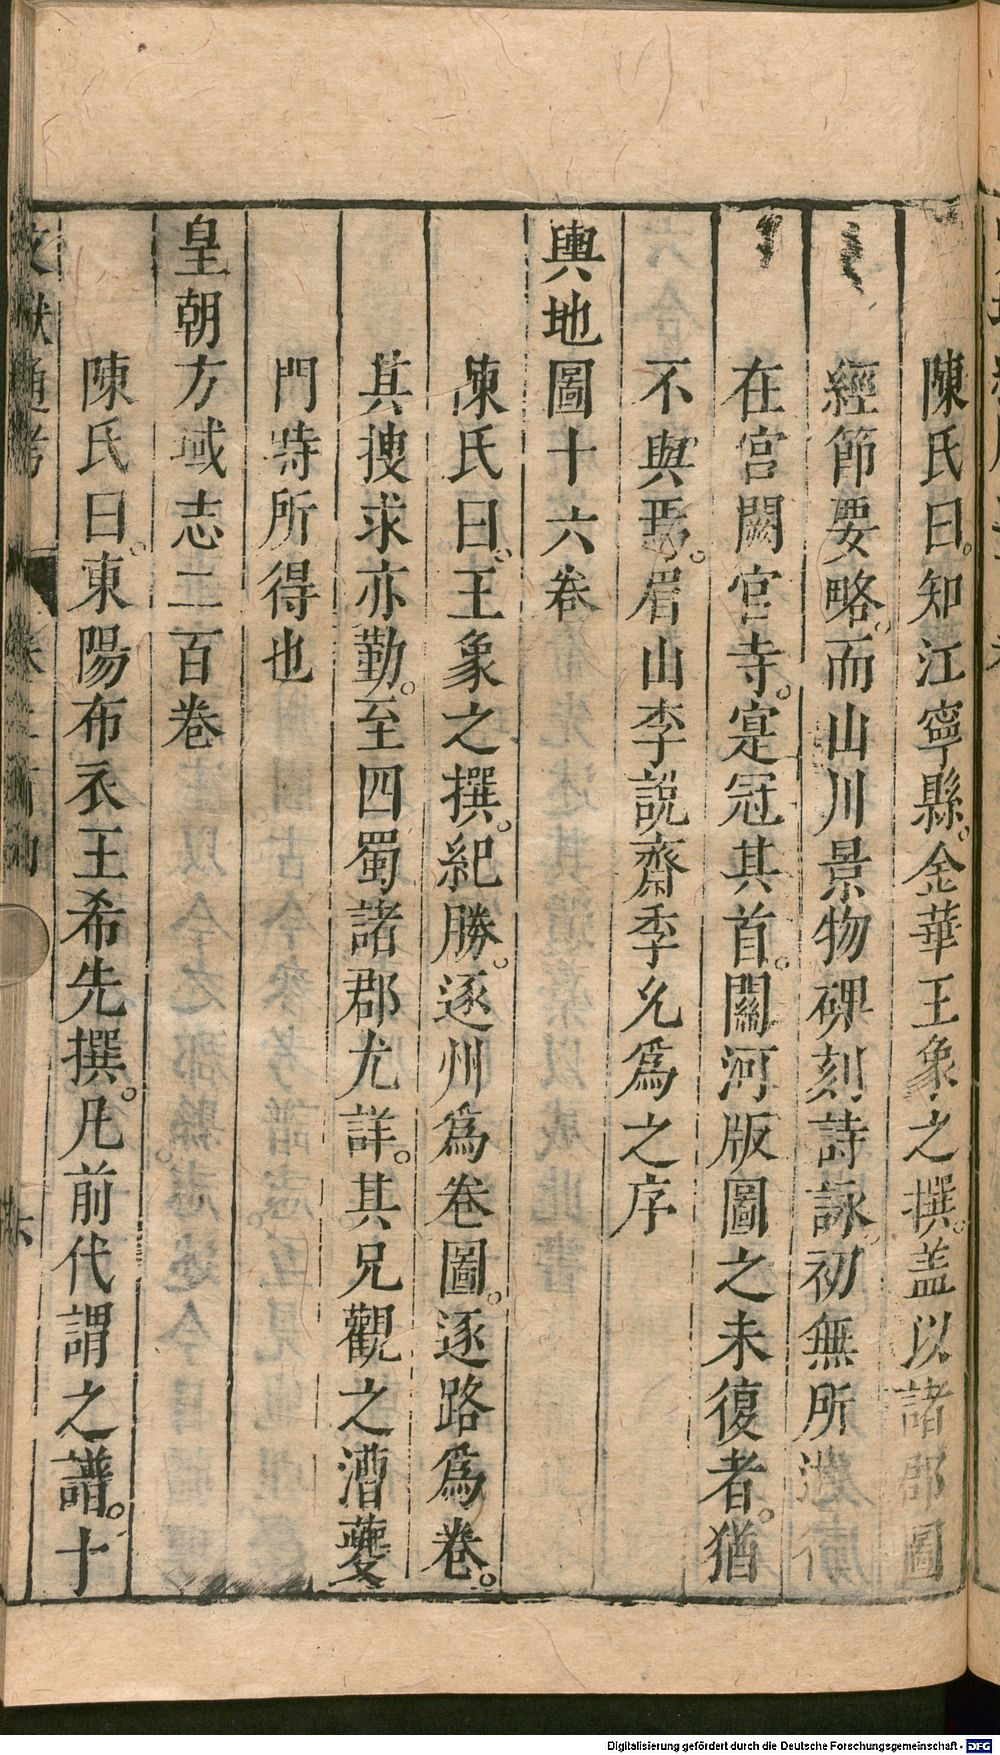 陳氏曰。知江寧縣。金華王象之撰。盖以諸郡圖
經節要略。而山川景物碑刻詩詠。初無所遺行
在宮闕官寺。寔冠其首。關河版圖之未復者。猶
不與焉。眉山李說齋季允為之序
輿地圖十六卷
陳氏曰。王象之撰。紀勝。逐州為卷圖。逐路為卷。
其搜求亦勤。至四蜀諸郡尤詳。其兄觀之漕夔
門時所得也
皇朝方域志二百卷
陳氏曰。東陽布衣王希先撰。凡前代謂之譜。十
文獻通考
Digitalisierung gefördert durch die Deutsche Forschungsgemeinschaft - DFG